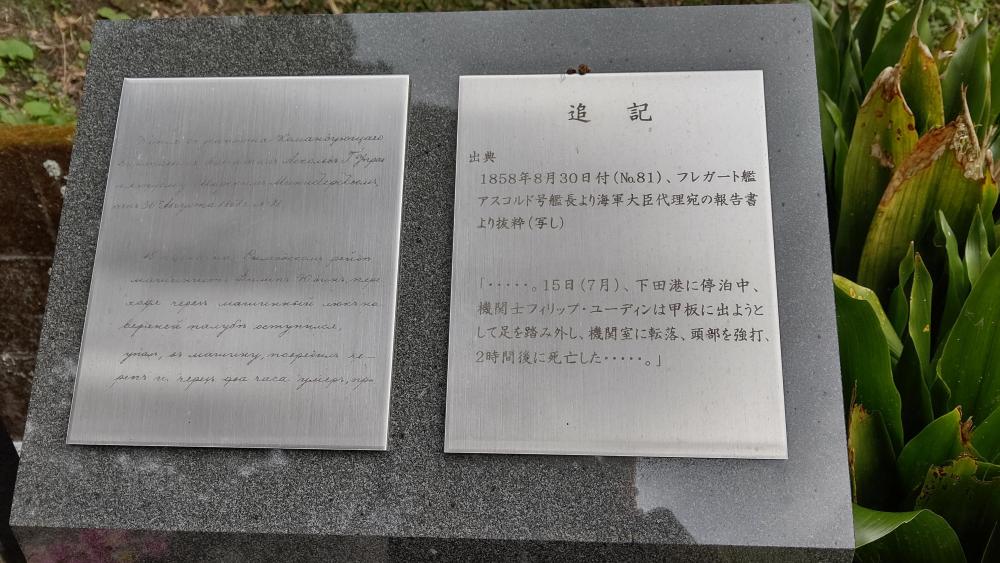 Командующаго
Аскольдъ
на Симодскомъ рейдѣ
машинистъ Филипъ Юдинъ, пере-
ходя черезъ машинный люкъ на
верхней палубѣ оступился,
упалъ въ машину, повредилъ че-
репъ и черезъ два часа умеръ,
追記
出典
1858年8月30日付(No.81)、フレガート艦
アスコルド号艦長より海軍大臣代理宛の報告書
より抜粋(写し)
「・・・・・。15日(7月)、下田港に停泊中、
機関士フィリップ・ユーディンは甲板に出ようと
して足を踏み外し、機関室に転落、頭部を強打、
2時間後に死亡した・・・・・。」